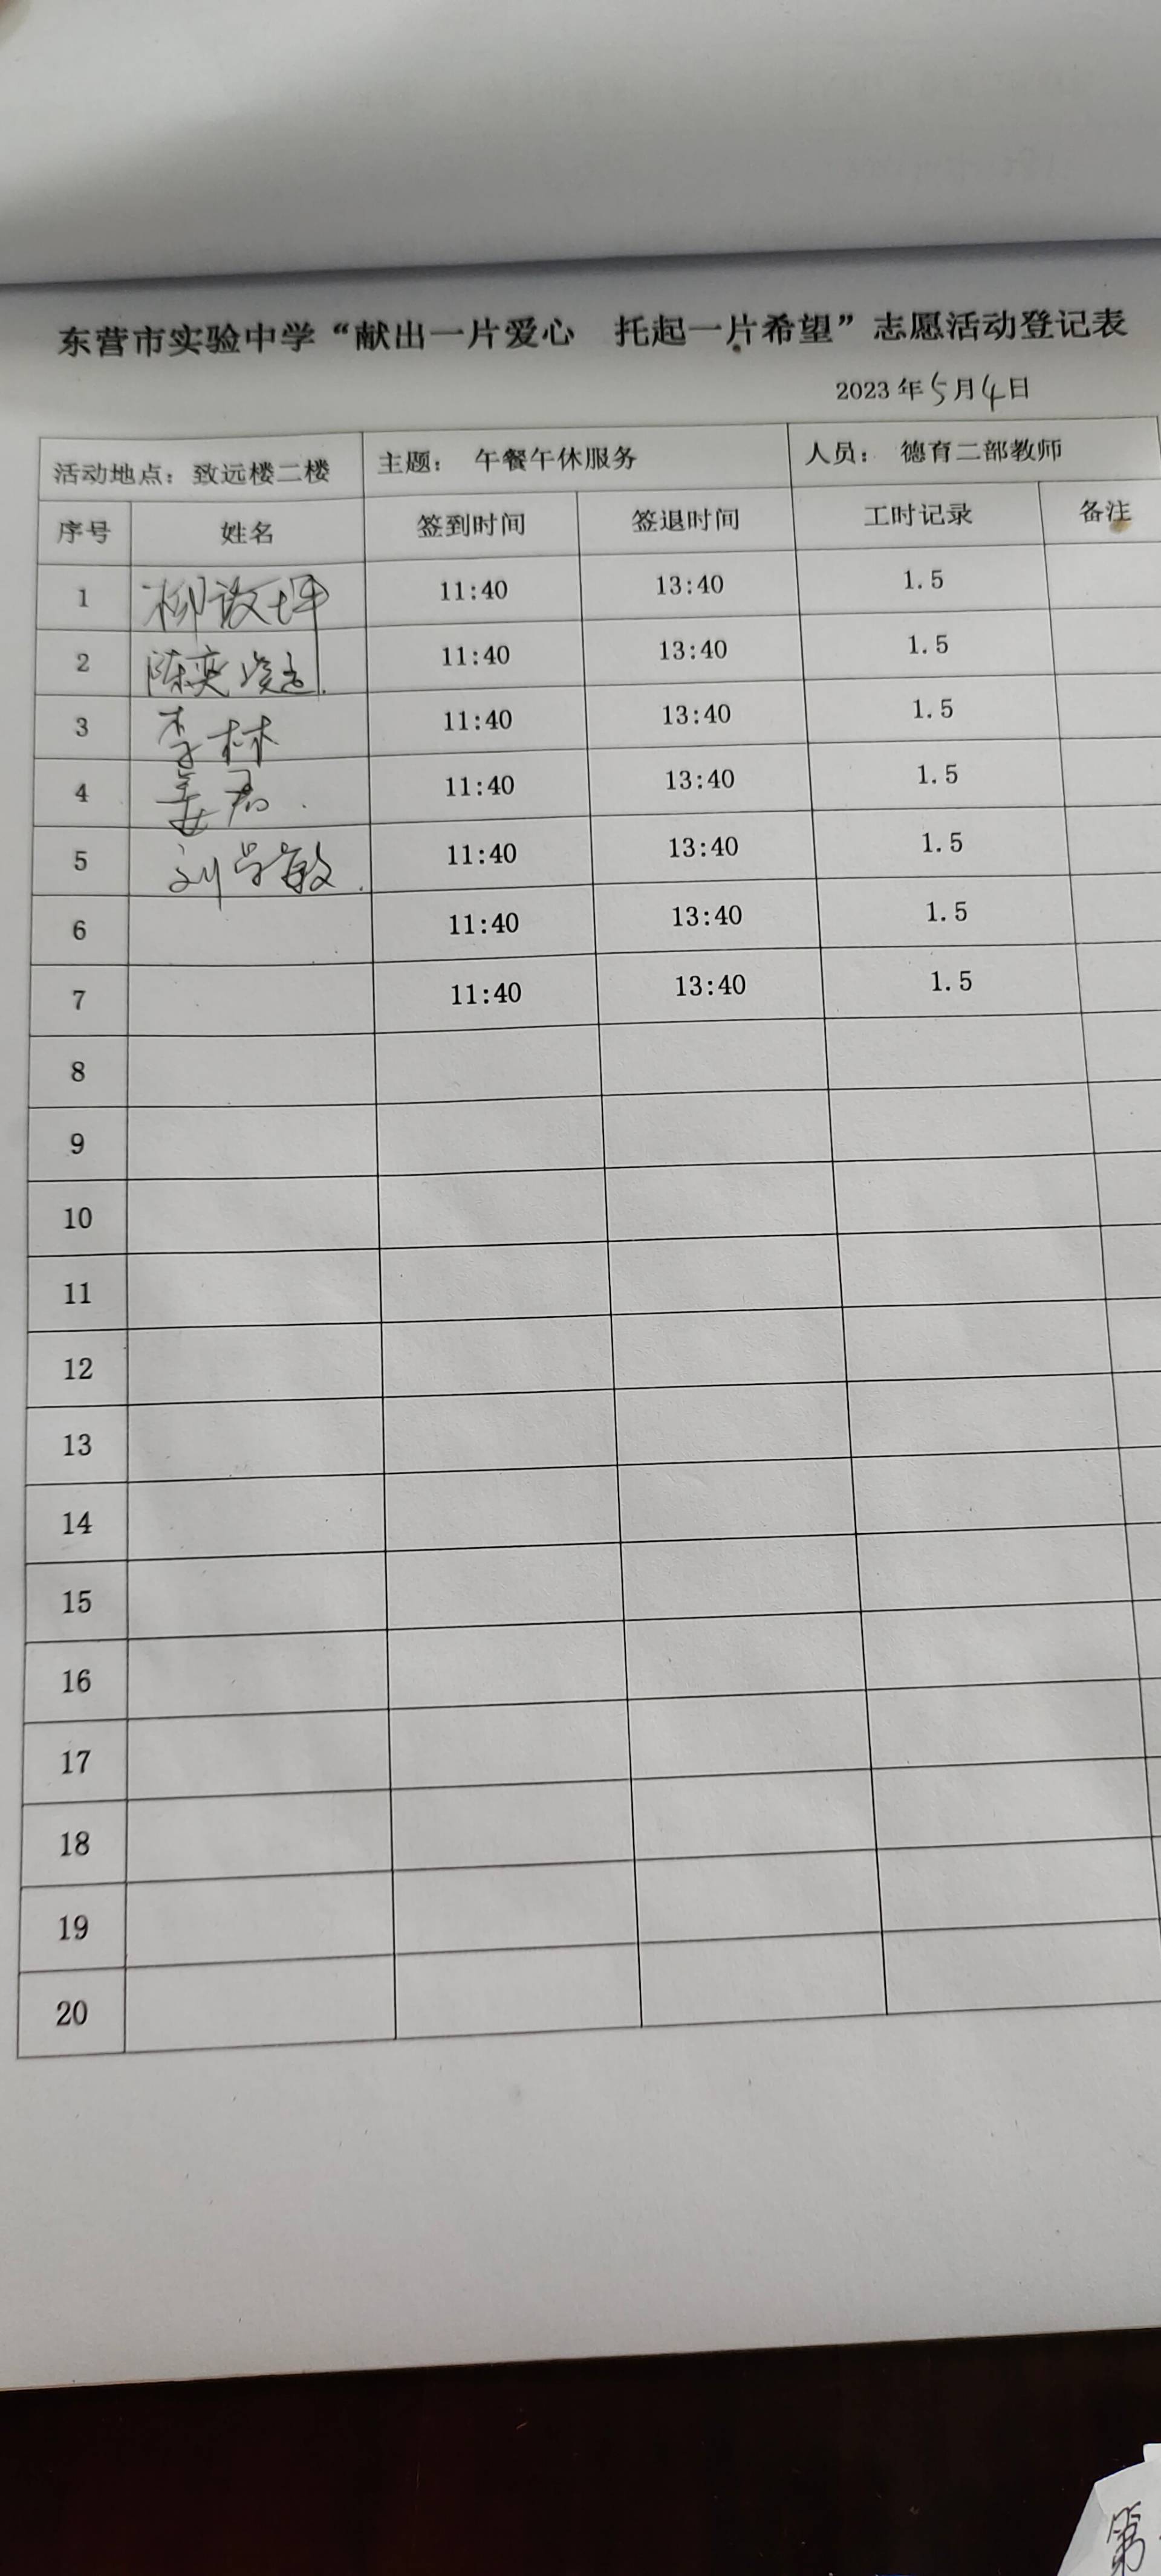 东营市实验中学“献出一片爱心 托起一片希望”志愿活动登记表
2023年5月4日
活动地点：致远楼二楼 主题： 午餐午休服务 人员： 德育二部教师
序号 姓名 签到时间 签退时间 工时记录 备注
1 柳 坪 11:40 13:40 1.5
2 陈奕 11:40 13:40 1.5
3 李林 11:40 13:40 1.5
4 姜君 11:40 13:40 1.5
5 刘学敏 11:40 13:40 1.5
6 11:40 13:40 1.5
7 11:40 13:40 1.5
8
9
10
11
12
13
14
15
16
17
18
19
20
第